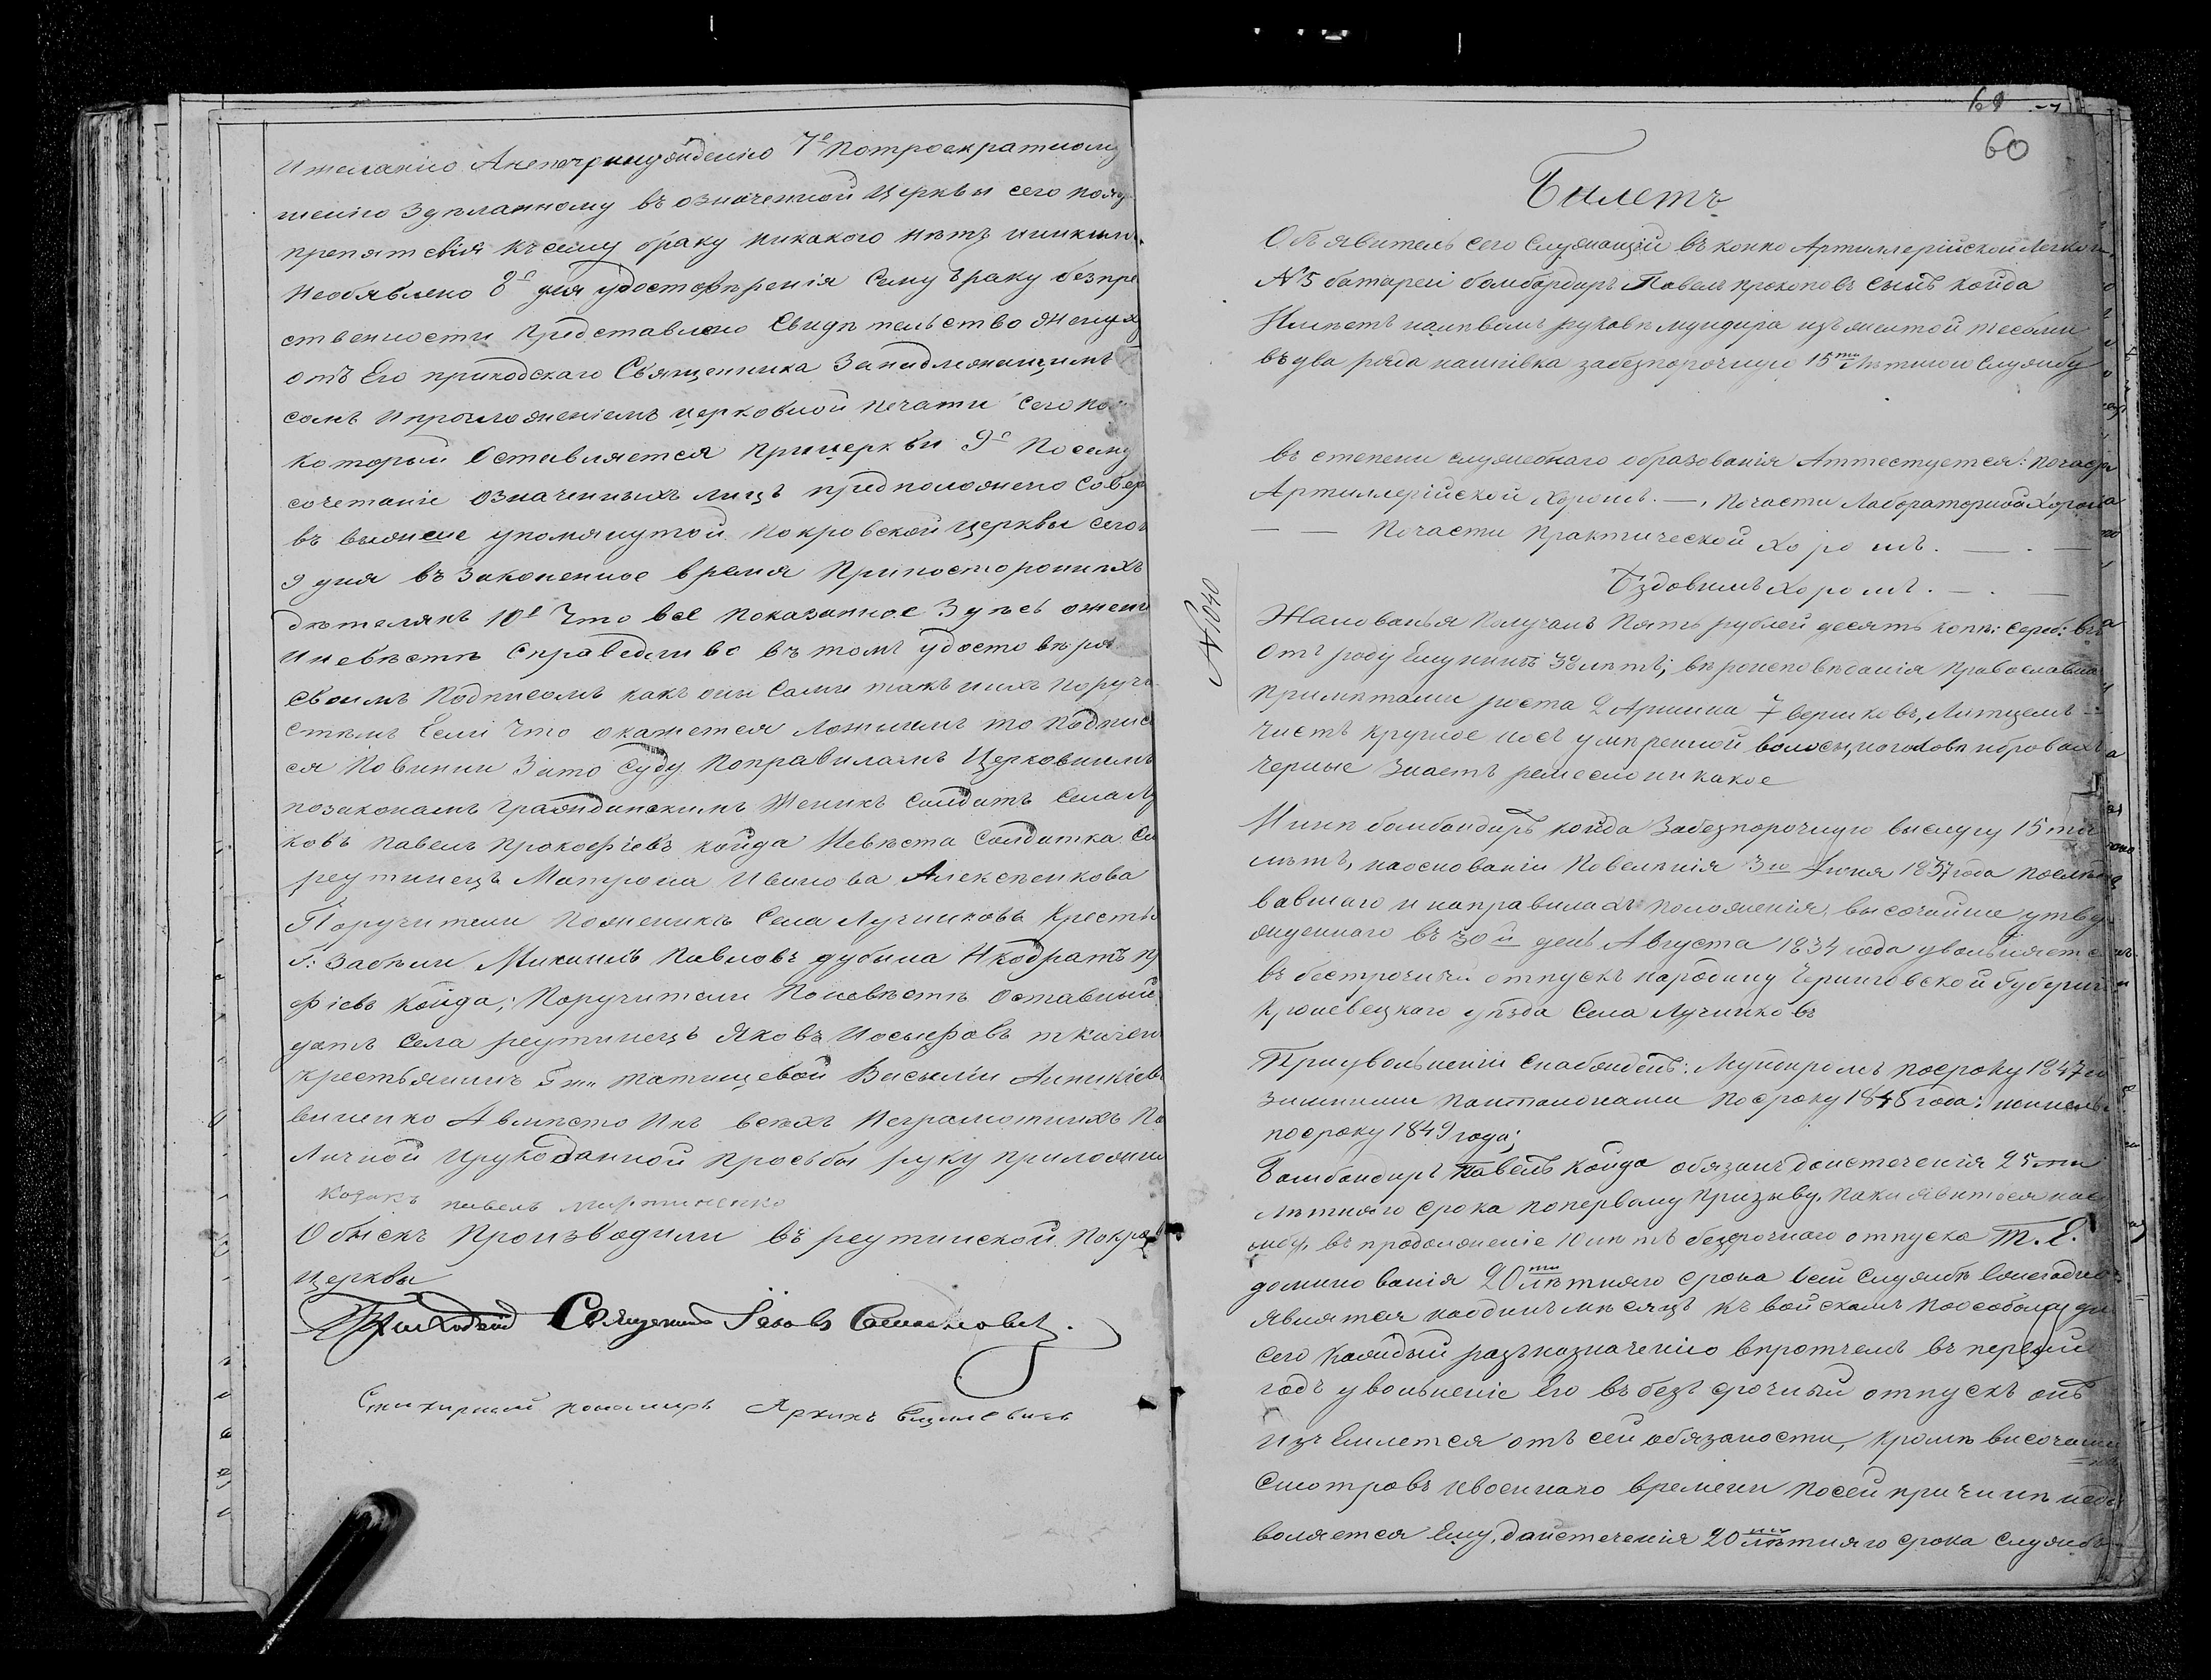 и желанію а не по принужденію 7е По троекратному
шенію здѣланному въ означенной церкви сего
препятсвія къ сему браку никакого нѣтъ и никимъ
необявлено 8е для удостовѣренія сему браку безпре
ственности представлено Свидѣтельство Жениха
отъ Его приходскаго Священника За надлежащимъ
сомъ и приложеніемъ церковной печати сего
который Оставляется при церкви 9е По сему
сочетаніе означенныхъ лицъ предположено Совер
въ вышше упомянутой Покровской церкви сего
9 дня въ Законенное время При постороннихъ
дѣтеляхъ 10е Что всё показанное Здѣсь о жених
и невѣсте Справедливо въ томъ удостовѣря
своимъ Подписомъ какъ они Сами такъ и ихъ поручи
стѣмъ Если Что окажется ложнымъ то подпис
ся Повинни За то суду По правиламъ Церковнымъ
по законамъ гражданскимъ Женихъ Солдатъ Села Лу
ковъ Павелъ Прокофіевъ койда Невѣста Солдатка Се
реутинецъ Матрона Иванова Алексеенкова
Поручители По женихъ Села Лучниковъ Кресть
Г: Забѣли Михаилъ Павловъ дубина И кодратъ пр
фіевъ Койда; Поручители По невѣсте Оставный
датъ Села реутинецъ Яковъ Иосыфовъ ткачен
крестьянинъ Г-жи татищевой Василій Аникіевъ
виненко А вмѣсто Ихъ всѣхъ Неграмотныхъ По
Личной и рукоданной просьбы руку приложилъ
козакъ павелъ мартиненко
Обыскъ Производили въ реутинской Покров
церкви
Приходскій Священникъ Іаковъ
Стихарный пономарь
60
Билетъ
Объявитель сего служащій въ конно Артиллерійской легкой
№5 батареи бомбардиръ Павелъ прокоповъ сынъ койда
Имѣетъ на лѣвомъ рукавѣ мундира изъ желтой тесьми
въ два ряда нашивка за безпорочную 15ти лѣтнюю службу
въ степени служебнаго образованія Аттестуется: по части
Артиллерійской Хорошъ. —, По части Лабораторной Хорошъ
— — По части Практической хорошъ. — . —
Ѣздовимъ хорошъ. — . —
№1040
Жалованья Получалъ Пять рублей десять копѣ: сереб: въ
Отъ роду Ему нинѣ 38 лѣтъ; вѣроисповѣданія Православна
Примѣтами роста 2 Аршина 7 вершковъ, Литцемъ
чистъ круглое носъ умѣренной волосы на головѣ и бровахъ
черные Знаетъ ремесло никакое
Нинѣ бомбандиръ койда За безпорочную выслугу 15ти
лѣтъ, на основаніи Повелѣнія 3го Іюня 1837 года послѣдо
вавшаго и на правилахъ положенія, высочайше утвер
жденнаго въ 30й день Августа 1834 года увольняется
въ бестрочній отпускъ на родину Черниговской Губерніи
Кролевецкаго уѣзда Села Лучниковъ
При увольненіи Снабжденъ: Мундиромъ по сроку 1847 го
зимними панталонами По сроку 1848 года: шинель
по сроку 1849 года;
Бомбандиръ Павелъ Койда обязанъ до истеченія 25ти
лѣтняго срока по первому Призыву, паки явиться на
въ продолженіе 10 лѣтъ безсрочнаго отпуска Т. Е.
до минованія 20ти лѣтняго срока Всей Службѣ Ежегодно
являтся на одинъ мѣсяцъ къ войскамъ по особому для
сего каждый разъ назначенію впротчемъ въ первый
годъ увольненіе Его въ безъ срочный отпускъ онъ
изъемлется отъ сей обязаности, кромѣ височаши
смотровъ и военнаго времени По сей причинѣ недоз
воляется Ему, до истеченія 20ти лѣтняго срока Службы